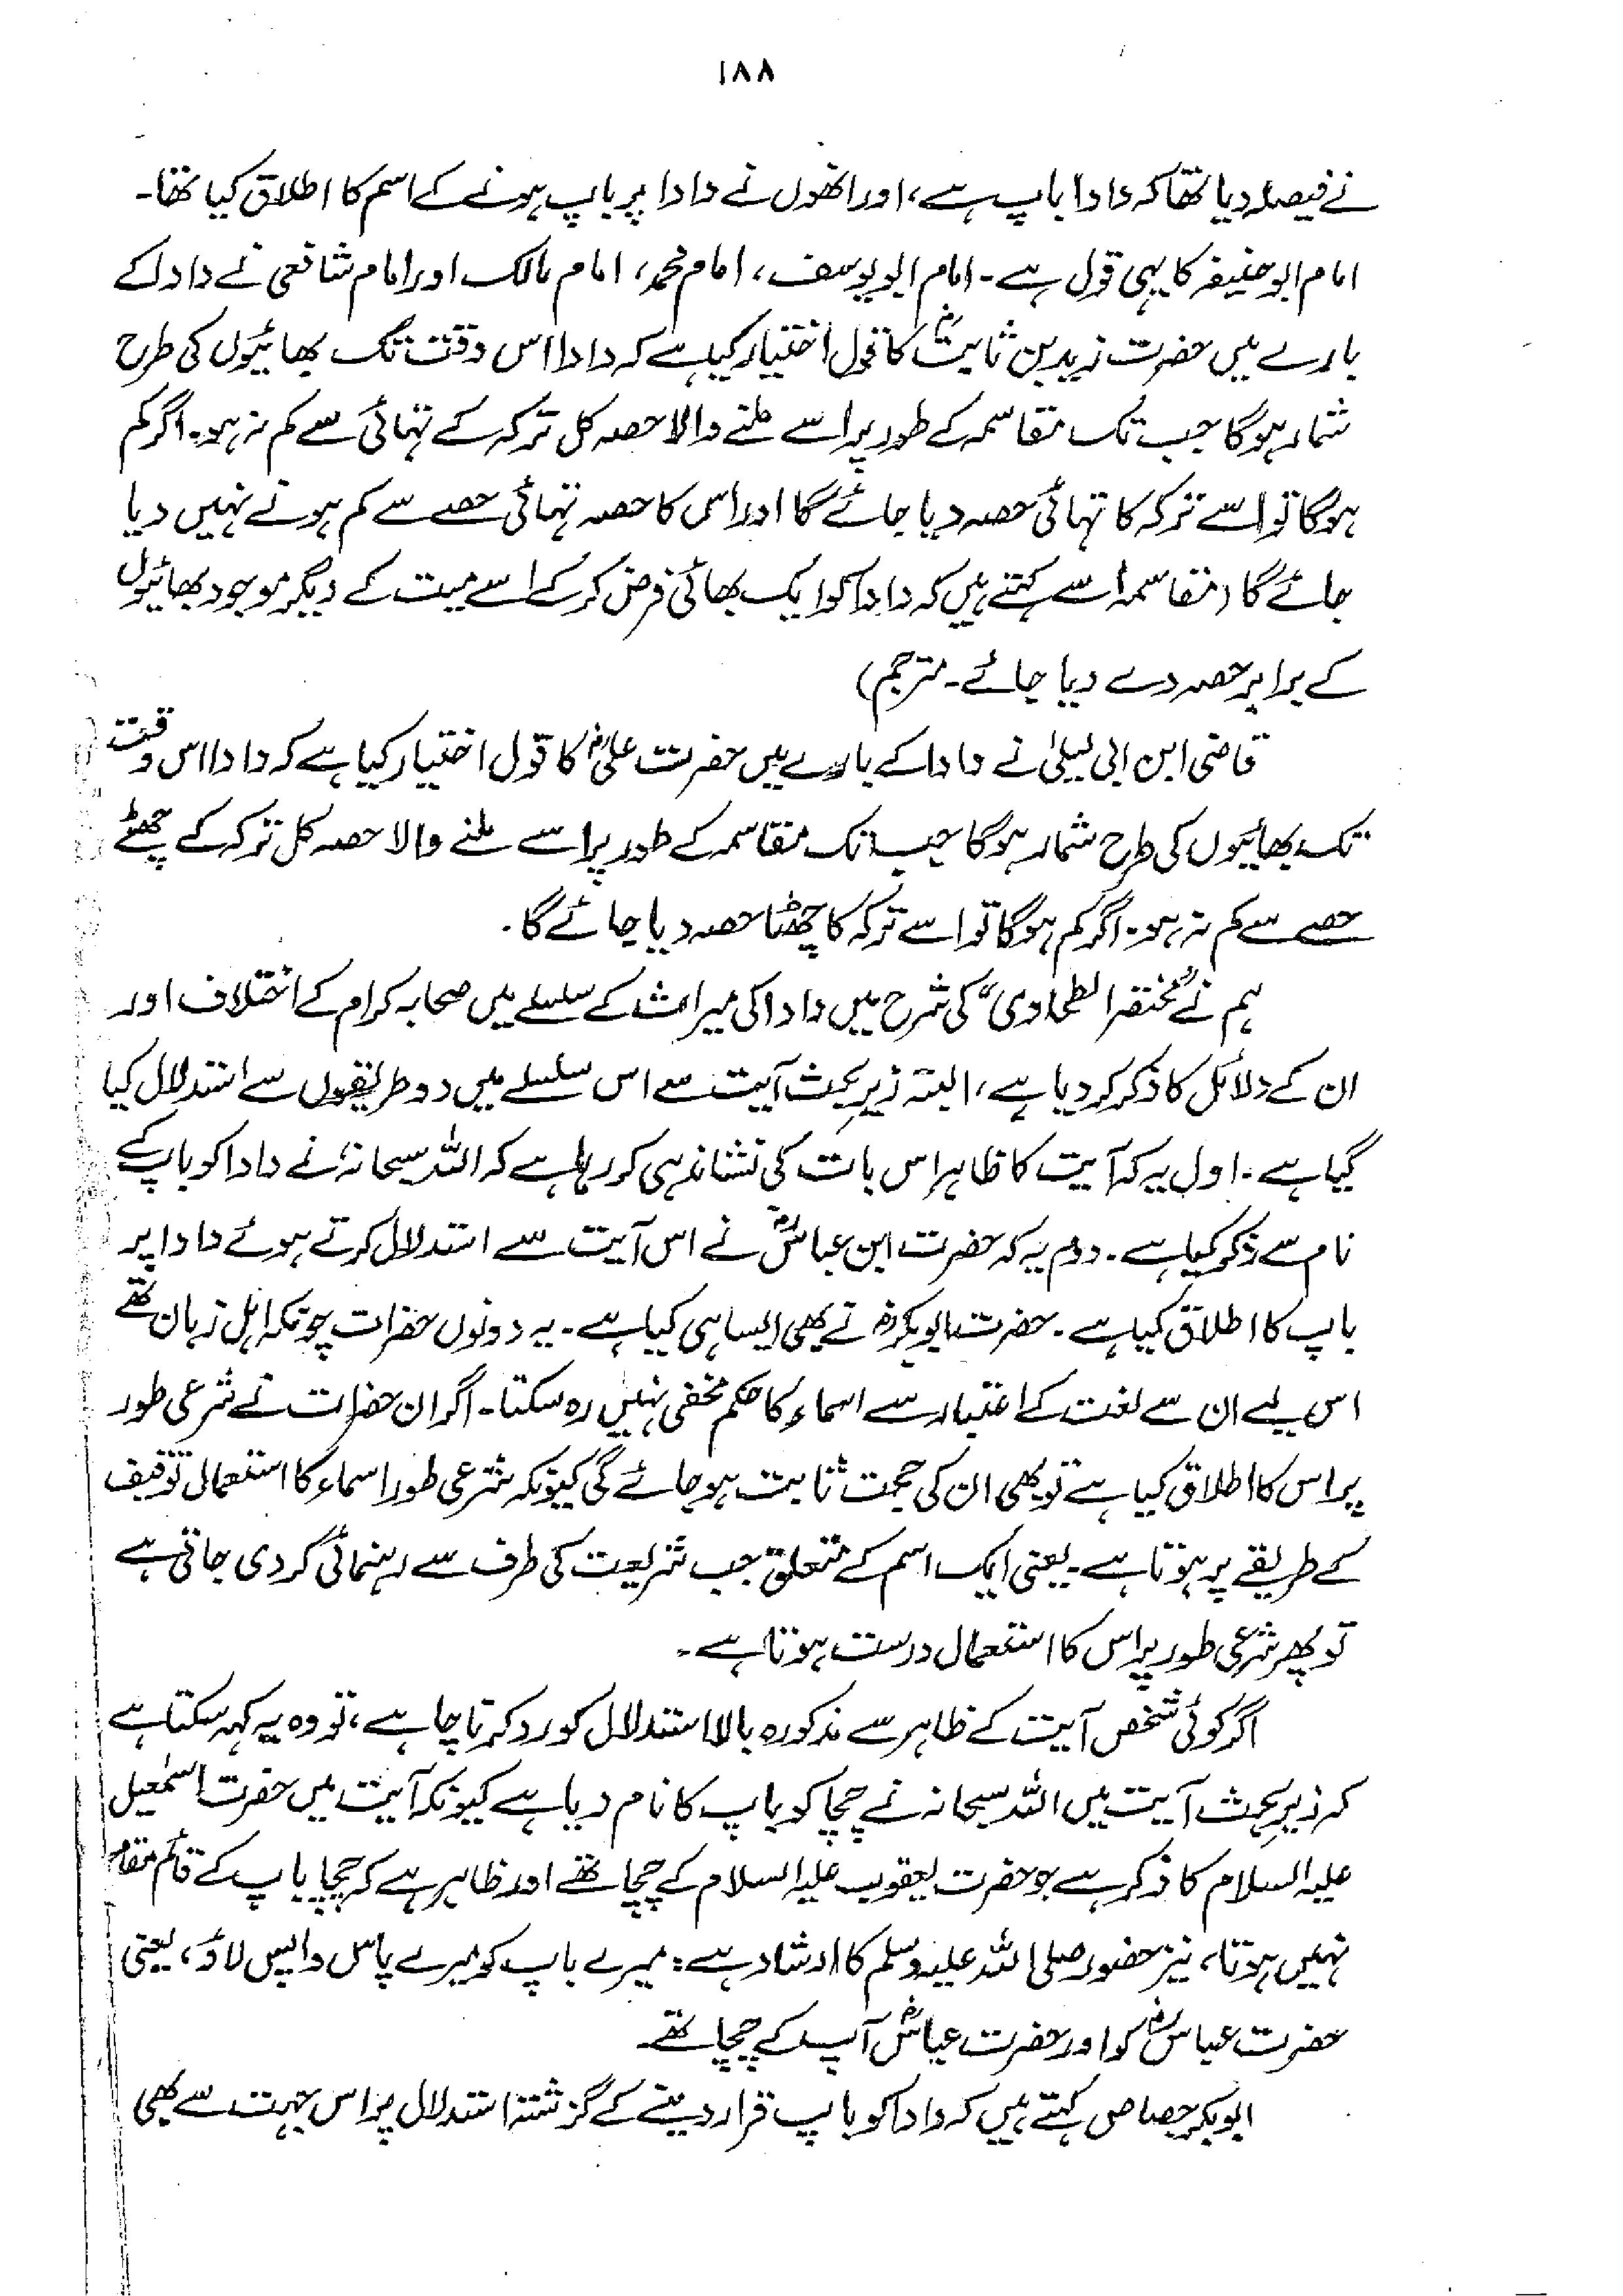 ۱۸۸
نے فیصلہ دیا تھا کہ دادا باپ ہے، اور انھوں نے دادا پر باپ ہونے کے اسم کا اطلاق کیا تھا۔
امام ابوحنیفہ کا یہی قول ہے۔ امام ابویوسف، امام محمد، امام مالک اور امام شافعی نے دادا کے
بارے میں حضرت زید بن ثابتؓ کا قول اختیار کیا ہے کہ دادا اس وقت تک بھائیوں کی طرح
شمار ہوگا جب تک مقاسمہ کے طور پر اسے ملنے والا حصہ کل ترکہ کے تہائی سے کم نہ ہو۔ اگر کم
ہوگا تو اسے ترکہ کا تہائی حصہ دیا جائے گا اور اس کا حصہ تہائی حصے سے کم ہونے نہیں دیا
جائے گا (مقاسمہ اسے کہتے ہیں کہ دادا کو ایک بھائی فرض کر کے اسے میت کے دیگر موجود بھائیوں
کے برابر حصہ دے دیا جائے۔ مترجم)
قاضی ابن ابی لیلیٰ نے دادا کے بارے میں حضرت علیؓ کا قول اختیار کیا ہے کہ دادا اس وقت
تک بھائیوں کی طرح شمار ہوگا جب تک مقاسمہ کے طور پر اسے ملنے والا حصہ کل ترکہ کے چھٹے
حصے سے کم نہ ہو۔ اگر کم ہوگا تو اسے ترکہ کا چھٹا حصہ دیا جائے گا۔
ہم نے "مختصر الطحاوی" کی شرح میں دادا کی میراث کے سلسلے میں صحابہ کرام کے اختلاف اور
ان کے دلائل کا ذکر کر دیا ہے، البتہ زیر بحث آیت سے اس سلسلے میں دو طریقوں سے استدلال کیا
گیا ہے۔ اول یہ کہ آیت کا ظاہر اس بات کی نشاندہی کر رہا ہے کہ اللہ سبحانہٗ نے دادا کو باپ کے
نام سے ذکر کیا ہے۔ دوم یہ کہ حضرت ابن عباسؓ نے اس آیت سے استدلال کرتے ہوئے دادا پر
باپ کا اطلاق کیا ہے۔ حضرت ابوبکرؓ نے بھی ایسا ہی کیا ہے۔ یہ دونوں حضرات چونکہ اہل زبان تھے
اس لیے ان سے لغت کے اعتبار سے اسماء کا حکم مخفی نہیں رہ سکتا۔ اگر ان حضرات نے شرعی طور
پر اس کا اطلاق کیا ہے تو بھی ان کی حجت ثابت ہو جائے گی کیونکہ شرعی طور اسماء کا استعمال توقیف
کے طریقے پر ہوتا ہے۔ یعنی ایک اسم کے متعلق جب شریعت کی طرف سے رہنمائی کر دی جاتی ہے
تو پھر شرعی طور پر اس کا استعمال درست ہوتا ہے۔
اگر کوئی شخص آیت کے ظاہر سے مذکورہ بالا استدلال کو رد کرنا چاہے، تو وہ یہ کہہ سکتا ہے
کہ زیر بحث آیت میں اللہ سبحانہ نے چچا کو باپ کا نام دیا ہے کیونکہ آیت میں حضرت اسمٰعیل
علیہ السلام کا ذکر ہے جو حضرت یعقوب علیہ السلام کے چچا تھے اور ظاہر ہے کہ چچا باپ کے قائم مقام
نہیں ہوتا، نیز حضور صلی اللہ علیہ وسلم کا ارشاد ہے: میرے باپ کو میرے پاس واپس لاؤ، یعنی
حضرت عباسؓ کو اور حضرت عباسؓ آپ کے چچا تھے۔
ابوبکر جصاص کہتے ہیں کہ دادا کو باپ قرار دینے کے گزشتہ استدلال پر اس جہت سے بھی